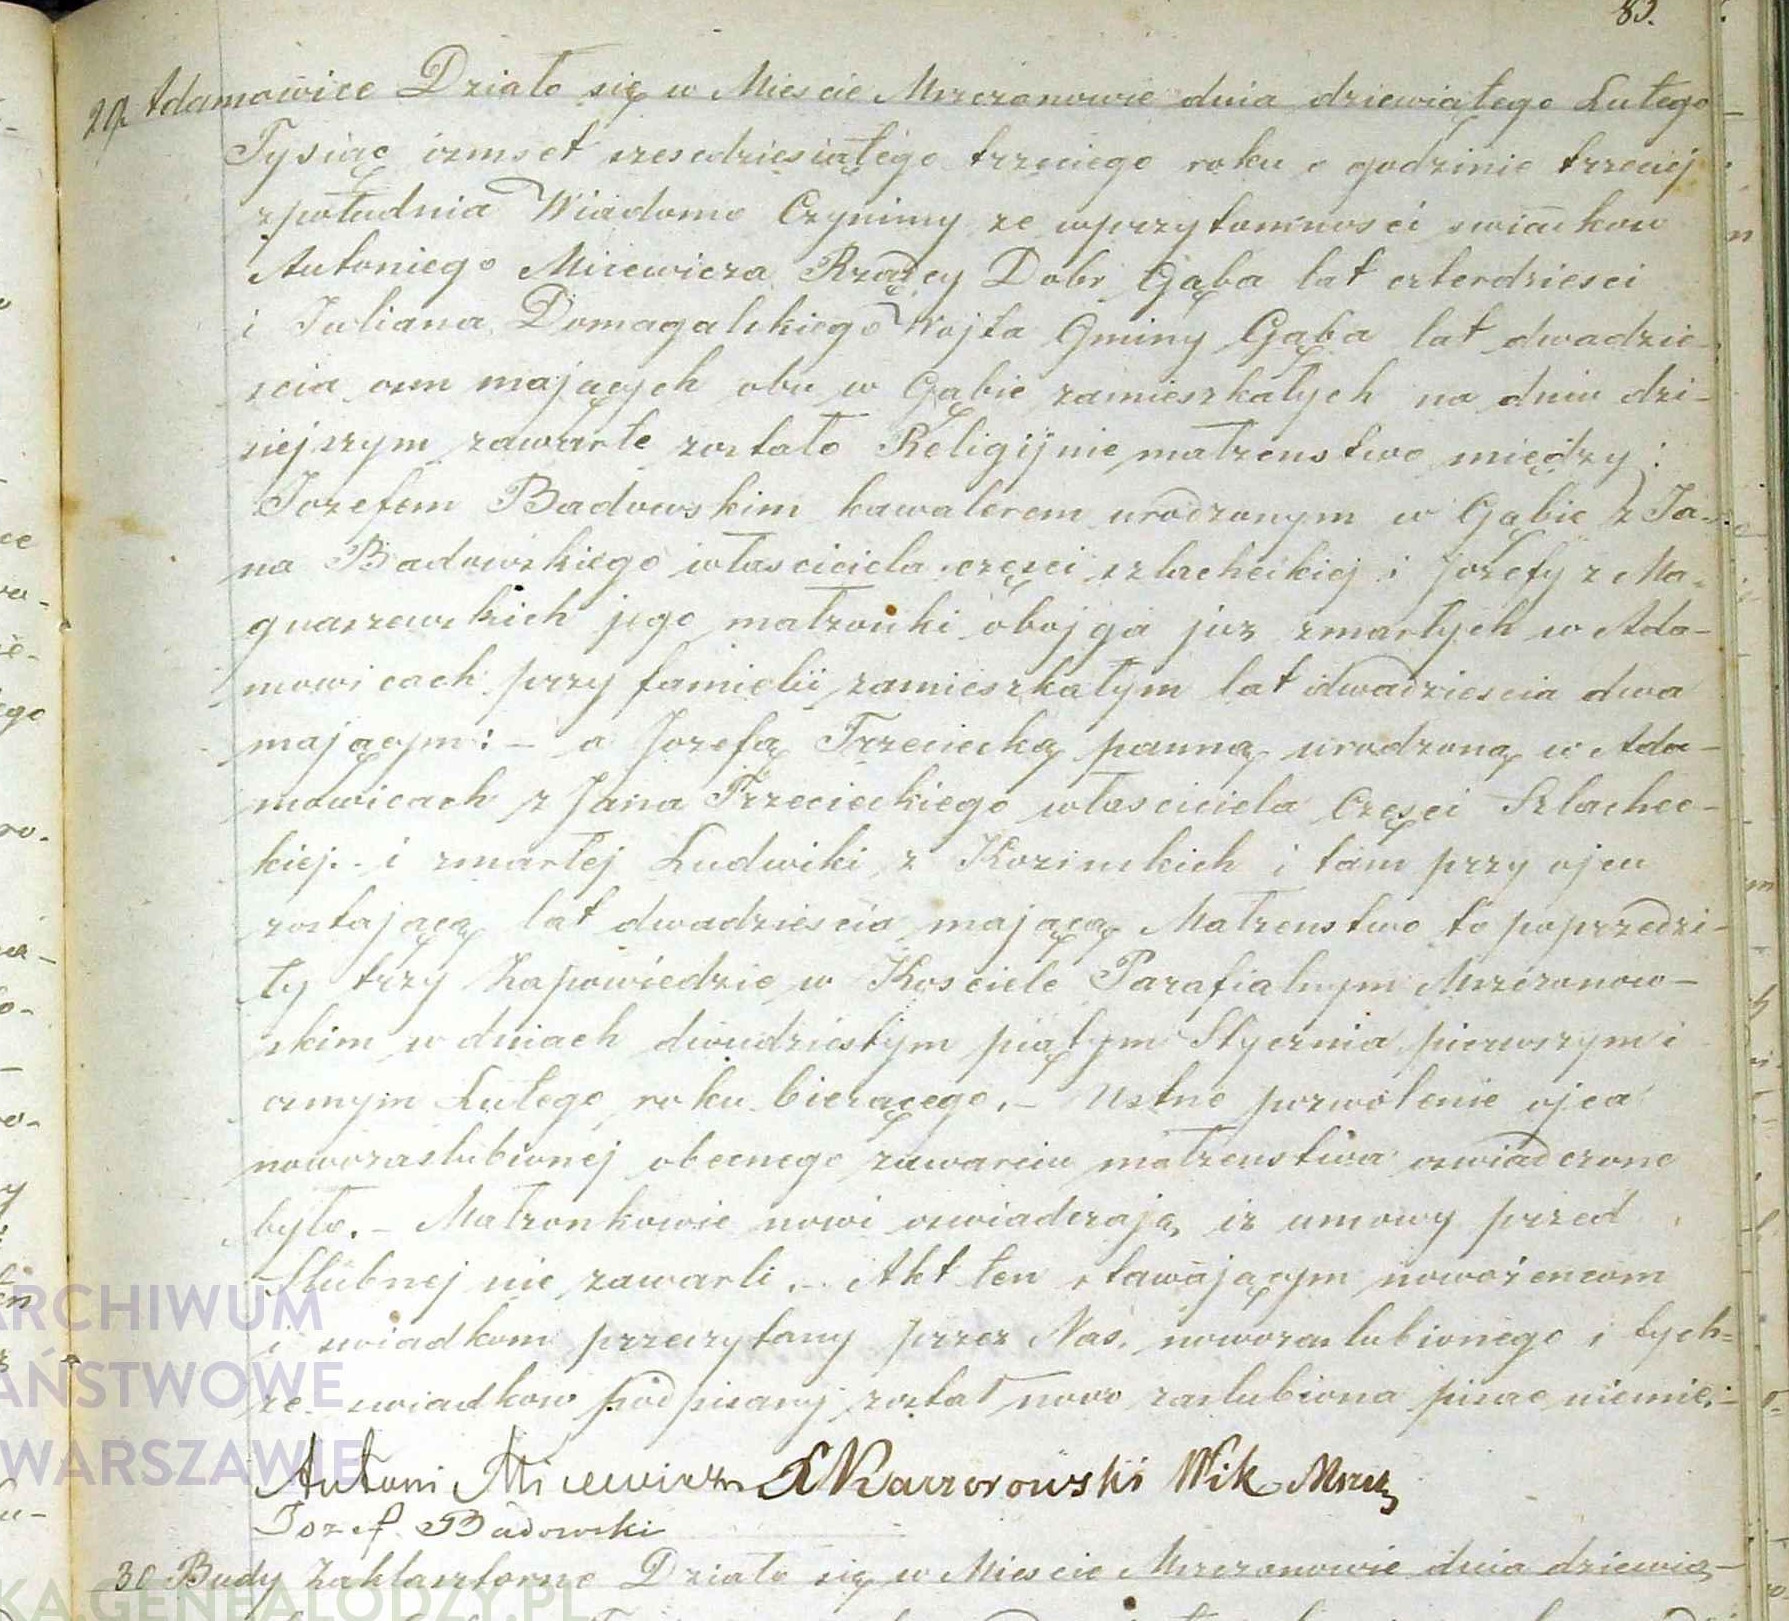 83.
29. Adamowice Działo się w Mieście Mszczonowie dnia dziewiątego Lutego
Tysiąc ośmset szescdziesiątego trzeciego roku o godzinie trzeciej
z południa Wiadomo Czynimy ze wprzytomnosci swiadkow
Antoniego Micewicza Rządcy Dobr Gąba lat czterdziesci
i Juliana Domagalskiego Wojta Gminy Gąba lat dwadzie-
scia osm mających obu w Gąbie zamieszkałych na dniu dzi-
siejszym zawarte zostało Religijnie małzenstwo między:
Jozefem Badowskim kawalerem urodzonym w Gąbie z Ja-
na Badowskiego własciciela częsci szlacheckiej i Jozefy z Ma-
gnuszewskich jego małzonki obojga juz zmarłych w Ada-
mowicach przy familii zamieszkałym lat dwadziescia dwa
mającym: – a Jozefą Trzeciecką panną urodzoną w Ada-
mowicach z Jana Trzecieckiego własciciela Częsci Szlachec-
kiej – i zmarłej Ludwiki z Kozinskich i tam przy ojcu
zostającą lat dwadziescia mającą Małzenstwo to poprzedzi-
ły trzy Zapowiedzie w Kosciele Parafialnym Mszczonow-
skim w dniach dwudziestym piątym Stycznia pierwszym i
osmym Lutego roku bierzącego. – Ustne pozwolenie ojca
nowozaslubionej obecnego zawarciu małzenstwa oswiadczone
było. – Małzonkowie nowi oswiadczają iz umowy przed
Slubnej nie zawarli. – Akt ten stawającym nowożencom
i swiadkom przeczytany przez Nas. nowozaslubionego i tych-
ze swiadkow podpisany został nowo zaslubiona pisac nieumie. –
Antoni Micewicz Kaczorowski Wik Mszcz
Jozef Badowski
30 Budy Zaklasztorne Działo się w Miescie Mszczonowie dnia dziewią-
ARCHIWUM
PAŃSTWOWE
W WARSZAWIE
KA.GENEALODZY.PL